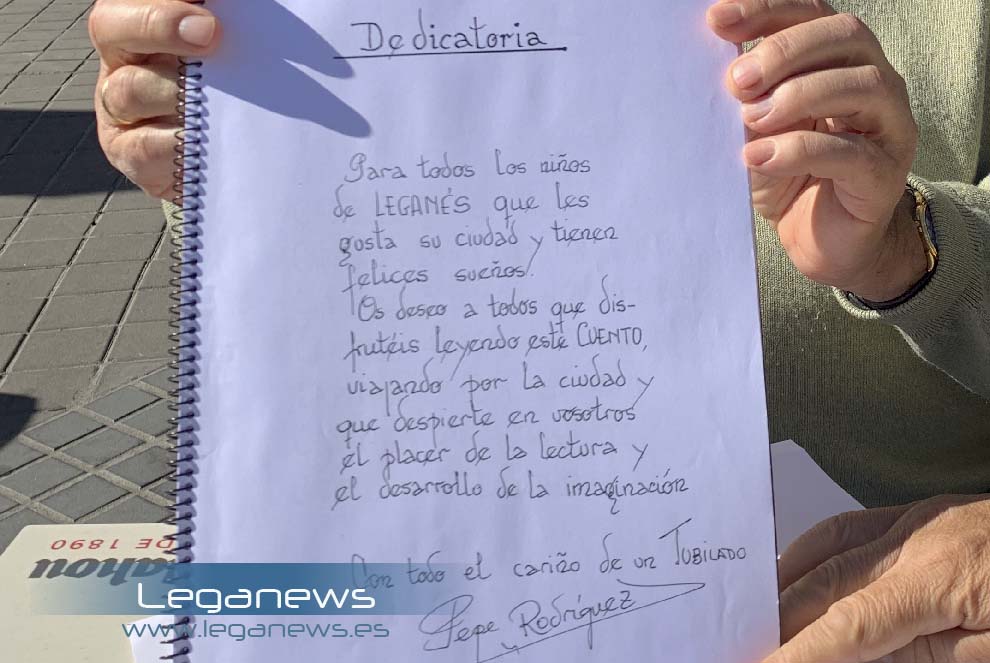 Dedicatoria
Para todos los niños
de LEGANÉS que les
gosta su ciudad y tienen
felices sueños.
Os deseo a todos que dis-
frutéis leyendo este CUENTO,
viajando por la ciudad y
que despierte en vosotros
el placer de la lectura y
el desarrollo de la imaginación
Con todo el cariño de un JUBILADO
Pepe Rodríguez
DE 1890
Mahou
Leganews
www.leganews.es